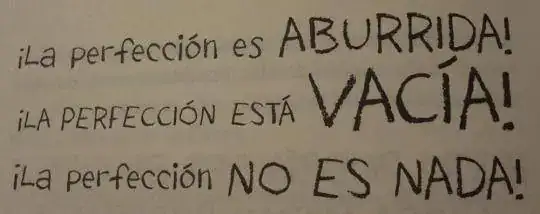 ¡La perfección es ABURRIDA!
¡LA PERFECCIÓN ESTÁ VACÍA!
¡La perfección NO ES NADA!